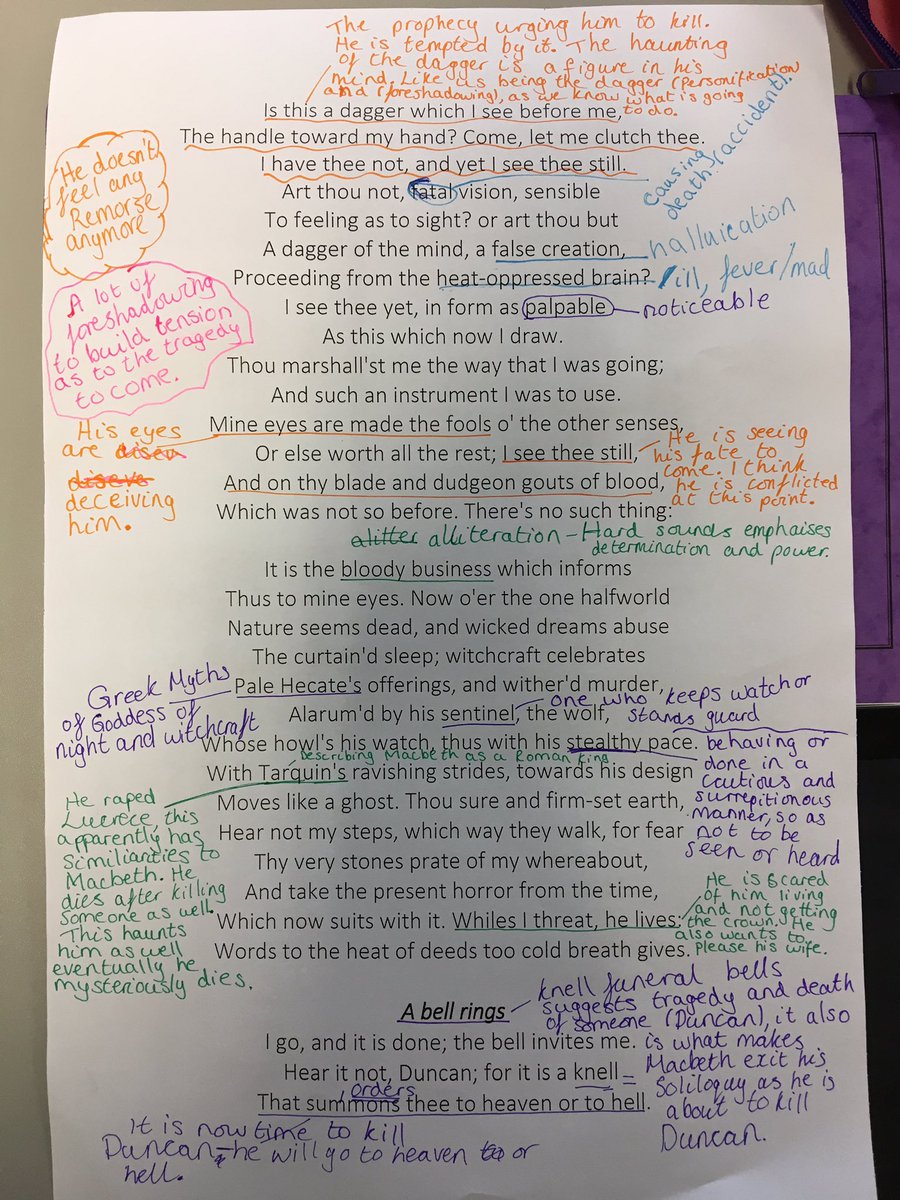 The prophecy urging him to kill.
He is tempted by it. The haunting
of the dagger is a figure in his
mind, Like Gus being the dagger (Personification
and (foreshadowing), as we know what is going
to do.
Is this a dagger which I see before me,
The handle toward my hand? Come, let me clutch thee.
I have thee not, and yet I see thee still.
causing
death (accident).
He doesn't
feel any
Remorse
anymore
Art thou not, fatal vision, sensible
To feeling as to sight? or art thou but
A dagger of the mind, a false creation,
halluication
Proceeding from the heat-oppressed brain?
ill, fever/mad
I see thee yet, in form as palpable
noticeable
As this which now I draw.
A lot of
foreshadowing
to build tension
as to the tragedy
to come.
Thou marshall'st me the way that I was going;
And such an instrument I was to use.
Mine eyes are made the fools o' the other senses,
Or else worth all the rest; I see thee still,
And on thy blade and dudgeon gouts of blood,
Which was not so before. There's no such thing:
His eyes
are
diseve
deceiving
him.
He is seeing
his fate to
come. I think
he is conflicted
at this point.
alitter alliteration - Hard sounds emphaises
determination and power.
It is the bloody business which informs
Thus to mine eyes. Now o'er the one halfworld
Nature seems dead, and wicked dreams abuse
The curtain'd sleep; witchcraft celebrates
Pale Hecate's offerings, and wither'd murder,
Greek Myths
of Goddess of
night and witchcraft
Alarum'd by his sentinel, the wolf,
one who keeps watch or
stands guard
Whose howl's his watch, thus with his stealthy pace.
behaving or
done in a
cautious and
surrepitionous
manner, so as
not to be
seen or heard
describing Macbeth as a Roman King
With Tarquin's ravishing strides, towards his design
Moves like a ghost. Thou sure and firm-set earth,
Hear not my steps, which way they walk, for fear
Thy very stones prate of my whereabout,
And take the present horror from the time,
Which now suits with it. Whiles I threat, he lives:
Words to the heat of deeds too cold breath gives.
He raped
Lucrece, this
apparently has
Similianties to
Macbeth. He
dies after killing
Someone as well.
This haunts
him as well
eventually he
mysteriously dies.
He is scared
of him living
and not getting
the crown. He
also wants to
please his wife.
A bell rings
knell funeral bells
suggests tragedy and death
of someone (Duncan), it also
is what makes
Macbeth exit his
Soliloquy as he is
about to kill
Duncan.
I go, and it is done; the bell invites me.
Hear it not, Duncan; for it is a knell
orders
That summons thee to heaven or to hell.
It is now time to kill
Duncan - he will go to heaven to or
hell.